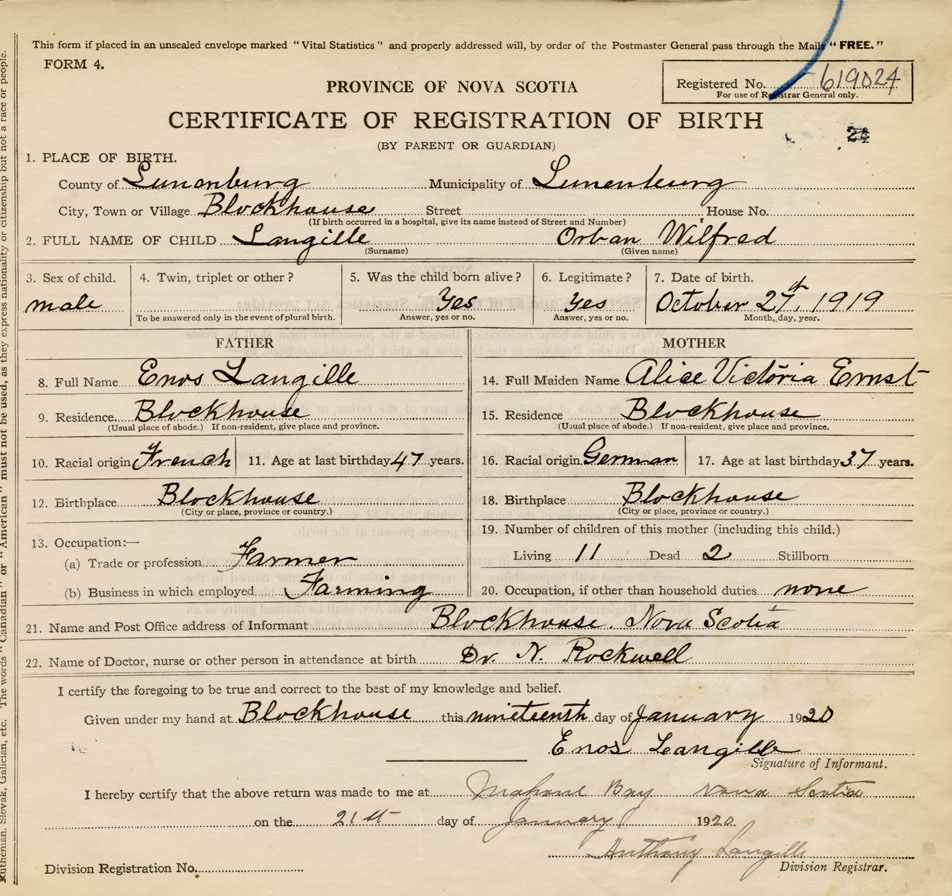 This form if placed in an unsealed envelope marked "Vital Statistics" and properly addressed will, by order of the Postmaster General pass through the Mails "FREE."
FORM 4.
Registered No. 619024
For use of Registrar General only.
PROVINCE OF NOVA SCOTIA
CERTIFICATE OF REGISTRATION OF BIRTH
24
(BY PARENT OR GUARDIAN)
1. PLACE OF BIRTH.
County of Lunenburg Municipality of Lunenburg
City, Town or Village Blockhouse Street House No.
(If birth occurred in a hospital, give its name instead of Street and Number)
2. FULL NAME OF CHILD Langille Orban Wilfred
(Surname) (Given name)
3. Sex of child. 4. Twin, triplet or other? 5. Was the child born alive? 6. Legitimate? 7. Date of birth.
male Yes Yes October 27th, 1919
To be answered only in the event of plural birth. Answer, yes or no. Answer, yes or no. Month, day, year.
FATHER MOTHER
8. Full Name Enos Langille 14. Full Maiden Name Alice Victoria Ernst
9. Residence Blockhouse 15. Residence Blockhouse
(Usual place of abode.) If non-resident, give place and province. (Usual place of abode.) If non-resident, give place and province.
10. Racial origin French 11. Age at last birthday 47 years. 16. Racial origin German 17. Age at last birthday 37 years.
12. Birthplace Blockhouse 18. Birthplace Blockhouse
(City or place, province or country.) (City or place, province or country.)
13. Occupation:— 19. Number of children of this mother (including this child.)
(a) Trade or profession Farmer Living 11 Dead 2 Stillborn
(b) Business in which employed Farming 20. Occupation, if other than household duties none
21. Name and Post Office address of Informant Blockhouse. Nova Scotia
22. Name of Doctor, nurse or other person in attendance at birth Dr. N. Rockwell
I certify the foregoing to be true and correct to the best of my knowledge and belief.
Given under my hand at Blockhouse this nineteenth day of January 1920
Enos Langille
Signature of Informant.
I hereby certify that the above return was made to me at Mahone Bay Nova Scotia
on the 21st day of January 1920.
Anthony Langille
Division Registration No. Division Registrar.
Ruthenian, Slovak, Galician, etc. The words "Canadian" or "American" must not be used, as they express nationality or citizenship but not a race or people.